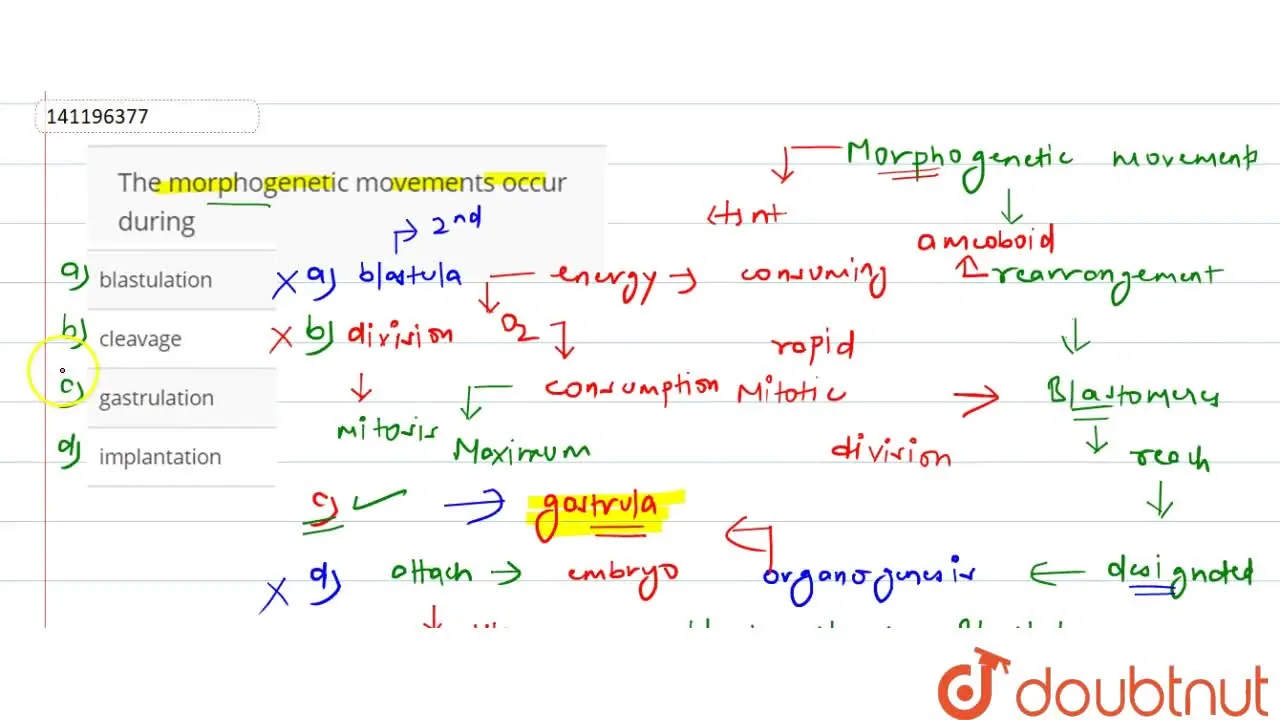 141196377
The morphogenetic movements occur
during
a) blastulation
b) cleavage
c) gastrulation
d) implantation
Morphogenetic movements
amoeboid
rearrangement
2nd
X a) blastula energy consuming
X b) division O2 rapid
consumption Mitotic Blastomeres
mitosis Maximum division reach
c) gastrula
X d) attach embryo organogenesis designated
doubtnut